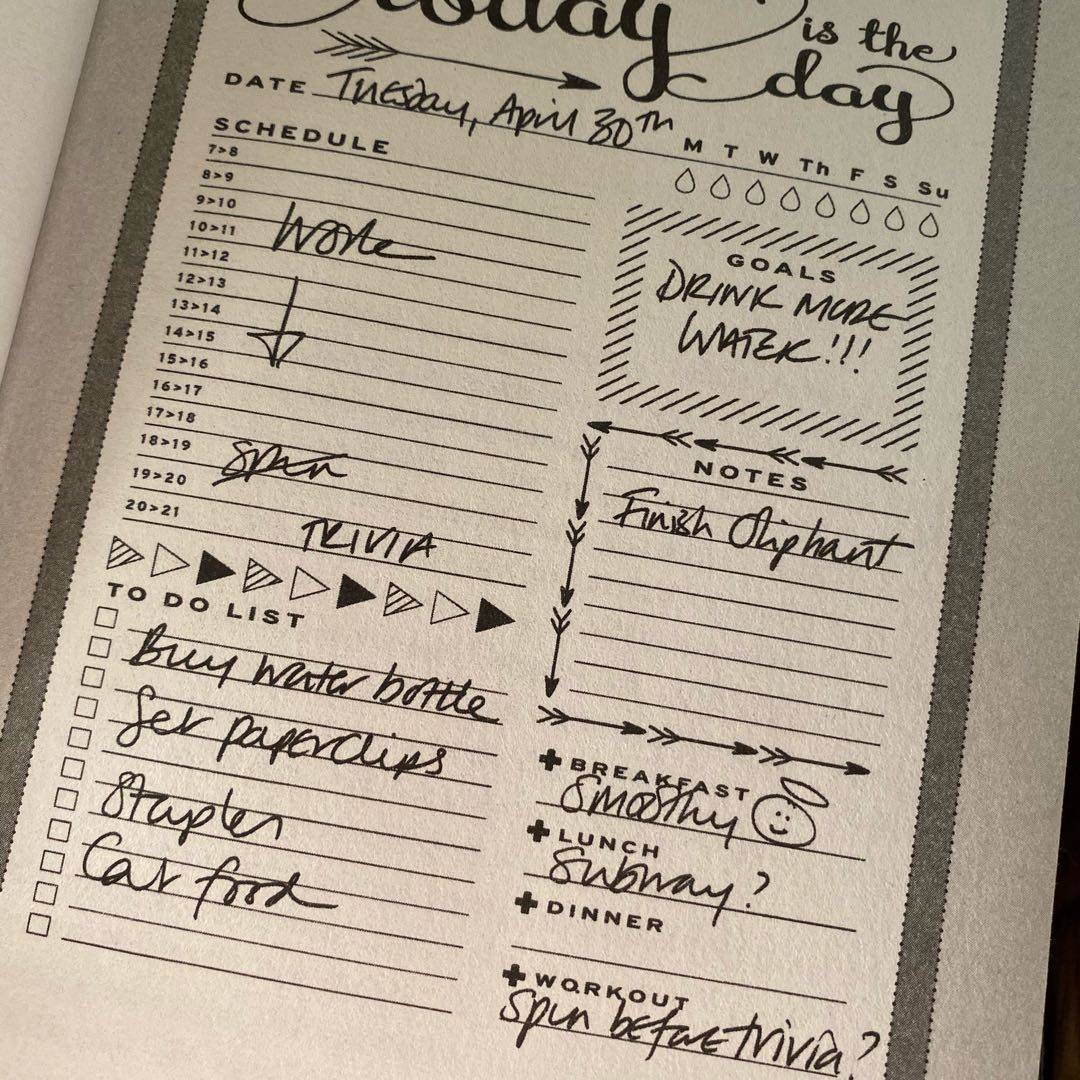 Today is the
day
DATE Tuesday, April 30th
M T W Th F S Su
SCHEDULE
7>8
8>9
9>10
10>11 Work
11>12
12>13
13>14
14>15
15>16
16>17
17>18
18>19 Spin
19>20
20>21 TRIVIA
GOALS
DRINK MORE
WATER!!!
NOTES
Finish Oliphant
TO DO LIST
Buy water bottle
Get paperclips
Staples
Cat food
+ BREAKFAST
Smoothy
+ LUNCH
Subway?
+ DINNER
+ WORKOUT
Spin before trivia?